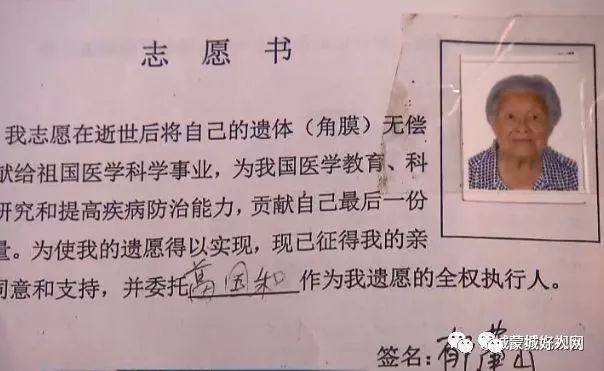 志愿书
我志愿在逝世后将自己的遗体（角膜）无偿
献给祖国医学科学事业，为我国医学教育、科
研究和提高疾病防治能力，贡献自己最后一份
量。为使我的遗愿得以实现，现已征得我的亲
同意和支持，并委托高国和作为我遗愿的全权执行人。
签名：郁肇
城蒙城好视网